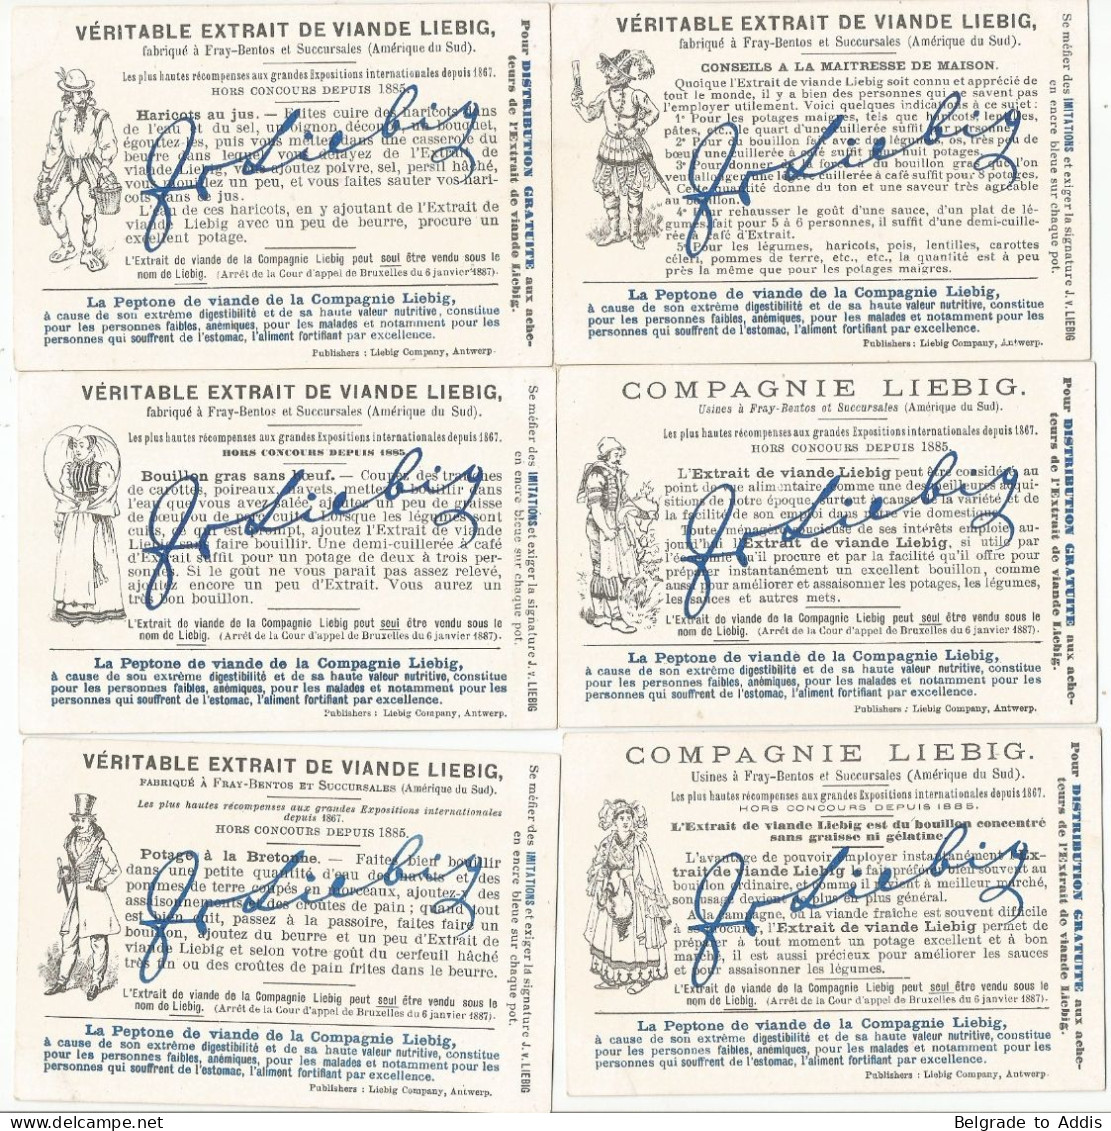 VÉRITABLE EXTRAIT DE VIANDE LIEBIG,
fabriqué à Fray-Bentos et Succursales (Amérique du Sud).
Les plus hautes récompenses aux grandes Expositions internationales depuis 1867.
HORS CONCOURS DEPUIS 1885.
Haricots au jus. — Faites cuire des haricots dans
de l'eau et du sel, un oignon découpé, un bouquet,
égouttez-les, puis vous mettez dans une casserole du
beurre dans lequel vous délayez de l'Extrait de
viande Liebig, vous ajoutez poivre, sel, persil haché,
vous mouillez un peu, et vous faites sauter vos hari-
cots dans ce jus.
L'eau de ces haricots, en y ajoutant de l'Extrait de
viande Liebig avec un peu de beurre, procure un
excellent potage.
L'Extrait de viande de la Compagnie Liebig peut seul être vendu sous le
nom de Liebig. (Arrêt de la Cour d'appel de Bruxelles du 6 janvier 1887).
La Peptone de viande de la Compagnie Liebig,
à cause de son extrême digestibilité et de sa haute valeur nutritive, constitue
pour les personnes faibles, anémiques, pour les malades et notamment pour les
personnes qui souffrent de l'estomac, l'aliment fortifiant par excellence.
Publishers : Liebig Company, Antwerp.
Pour DISTRIBUTION GRATUITE aux ache-
teurs de l'Extrait de viande Liebig.
J v Liebig
VÉRITABLE EXTRAIT DE VIANDE LIEBIG,
fabriqué à Fray-Bentos et Succursales (Amérique du Sud).
CONSEILS A LA MAITRESSE DE MAISON.
Quoique l'Extrait de viande Liebig soit connu et apprécié de
tout le monde, il y a bien des personnes qui ne savent pas
l'employer utilement. Voici quelques indications à ce sujet :
1° Pour les potages maigres, tels que haricots, lentilles,
pâtes, etc., le quart d'une cuillerée suffit par personne.
2° Pour du bouillon fait avec des légumes, os, très peu de
bœuf, une cuillerée à café suffit pour potages.
3° Pour donner du fond au bouillon gras que l'on
veut allonger, une cuillerée à café suffit pour 8 potages.
Cette quantité donne du ton et une saveur très agréable
au bouillon.
4° Pour rehausser le goût d'une sauce, d'un plat de lé-
gumes, fait pour 5 à 6 personnes, il suffit d'une demi-cuille-
rée à café d'Extrait.
5° Pour les légumes, haricots, pois, lentilles, carottes
céleri, pommes de terre, etc., etc., la quantité est à peu
près la même que pour les potages maigres.
La Peptone de viande de la Compagnie Liebig,
à cause de son extrême digestibilité et de sa haute valeur nutritive, constitue
pour les personnes faibles, anémiques, pour les malades et notamment pour les
personnes qui souffrent de l'estomac, l'aliment fortifiant par excellence.
Publishers : Liebig Company, Antwerp.
Se méfier des IMITATIONS et exiger la signature J. v. LIEBIG
en encre bleue sur chaque pot.
J v Liebig
VÉRITABLE EXTRAIT DE VIANDE LIEBIG,
fabriqué à Fray-Bentos et Succursales (Amérique du Sud).
Les plus hautes récompenses aux grandes Expositions internationales depuis 1867.
HORS CONCOURS DEPUIS 1885
Bouillon gras sans bœuf. — Coupez des tranches
de carottes, poireaux, navets, mettez bouillir dans
l'eau que vous avez salée, ajoutez un peu de graisse
de bœuf ou de porc cuite. Lorsque les légumes sont
cuits, ce qui est prompt, ajoutez l'Extrait de viande
Liebig sans faire bouillir. Une demi-cuillerée à café
d'Extrait suffit pour un potage de deux à trois per-
sonnes. Si le goût ne vous parait pas assez relevé,
ajoutez encore un peu d'Extrait. Vous aurez un
très bon bouillon.
L'Extrait de viande de la Compagnie Liebig peut seul être vendu sous le
nom de Liebig. (Arrêt de la Cour d'appel de Bruxelles du 6 janvier 1887).
La Peptone de viande de la Compagnie Liebig,
à cause de son extrême digestibilité et de sa haute valeur nutritive, constitue
pour les personnes faibles, anémiques, pour les malades et notamment pour les
personnes qui souffrent de l'estomac, l'aliment fortifiant par excellence.
Publishers : Liebig Company, Antwerp.
Se méfier des IMITATIONS et exiger la signature J. v. LIEBIG
en encre bleue sur chaque pot.
J v Liebig
COMPAGNIE LIEBIG.
Usines à Fray-Bentos et Succursales (Amérique du Sud).
Les plus hautes récompenses aux grandes Expositions internationales depuis 1867.
HORS CONCOURS DEPUIS 1885.
L'Extrait de viande Liebig peut être considéré, au
point de vue alimentaire, comme une des meilleures acqui-
sitions de notre époque, surtout à cause de la variété et de
la facilité de son emploi dans notre vie domestique.
Toute ménagère soucieuse de ses intérêts emploie au-
jourd'hui l'Extrait de viande Liebig, si utile par
l'économie qu'il procure et par la facilité qu'il offre pour
préparer instantanément un excellent bouillon, comme
aussi pour améliorer et assaisonner les potages, les légumes,
les sauces et autres mets.
L'Extrait de viande de la Compagnie Liebig peut seul être vendu sous le
nom de Liebig. (Arrêt de la Cour d'appel de Bruxelles du 6 janvier 1887).
La Peptone de viande de la Compagnie Liebig,
à cause de son extrême digestibilité et de sa haute valeur nutritive, constitue
pour les personnes faibles, anémiques, pour les malades et notamment pour les
personnes qui souffrent de l'estomac, l'aliment fortifiant par excellence.
Publishers : Liebig Company, Antwerp.
Pour DISTRIBUTION GRATUITE aux ache-
teurs de l'Extrait de viande Liebig.
J v Liebig
VÉRITABLE EXTRAIT DE VIANDE LIEBIG,
FABRIQUÉ À FRAY-BENTOS ET SUCCURSALES (Amérique du Sud).
Les plus hautes récompenses aux grandes Expositions internationales
depuis 1867.
HORS CONCOURS DEPUIS 1885.
Potage à la Bretonne. — Faites bien bouillir
dans une petite quantité d'eau des navets et des
pommes de terre coupés en morceaux, ajoutez-y des
assaisonnements et des croûtes de pain ; quand tout
est bien cuit, passez à la passoire, faites faire un
bouillon, ajoutez du beurre et un peu d'Extrait de
viande Liebig et selon votre goût du cerfeuil hâché
très fin ou des croûtes de pain frites dans le beurre.
L'Extrait de viande de la Compagnie Liebig peut seul être vendu sous le
nom de Liebig. (Arrêt de la Cour d'appel de Bruxelles du 6 janvier 1887).
La Peptone de viande de la Compagnie Liebig,
à cause de son extrême digestibilité et de sa haute valeur nutritive, constitue
pour les personnes faibles, anémiques, pour les malades et notamment pour les
personnes qui souffrent de l'estomac, l'aliment fortifiant par excellence.
Publishers : Liebig Company, Antwerp.
Se méfier des IMITATIONS et exiger la signature J. v. LIEBIG
en encre bleue sur chaque pot.
J v Liebig
COMPAGNIE LIEBIG.
Usines à Fray-Bentos et Succursales (Amérique du Sud).
Les plus hautes récompenses aux grandes Expositions internationales depuis 1867.
HORS CONCOURS DEPUIS 1885.
L'Extrait de viande Liebig est du bouillon concentré
sans graisse ni gélatine.
L'avantage de pouvoir employer instantanément l'Ex-
trait de viande Liebig le fait préférer bien souvent au
bouillon ordinaire, et comme il revient à meilleur marché,
son usage devient de plus en plus général.
A la campagne, où la viande fraîche est souvent difficile
à se procurer, l'Extrait de viande Liebig permet de
préparer à tout moment un potage excellent et à bon
marché, il est aussi précieux pour améliorer les sauces
et pour assaisonner les légumes.
L'Extrait de viande de la Compagnie Liebig peut seul être vendu sous le
nom de Liebig. (Arrêt de la Cour d'appel de Bruxelles du 6 janvier 1887).
La Peptone de viande de la Compagnie Liebig,
à cause de son extrême digestibilité et de sa haute valeur nutritive, constitue
pour les personnes faibles, anémiques, pour les malades et notamment pour les
personnes qui souffrent de l'estomac, l'aliment fortifiant par excellence.
Publishers : Liebig Company, Antwerp.
Pour DISTRIBUTION GRATUITE aux ache-
teurs de l'Extrait de viande Liebig.
J v Liebig
Belgrade to Addis